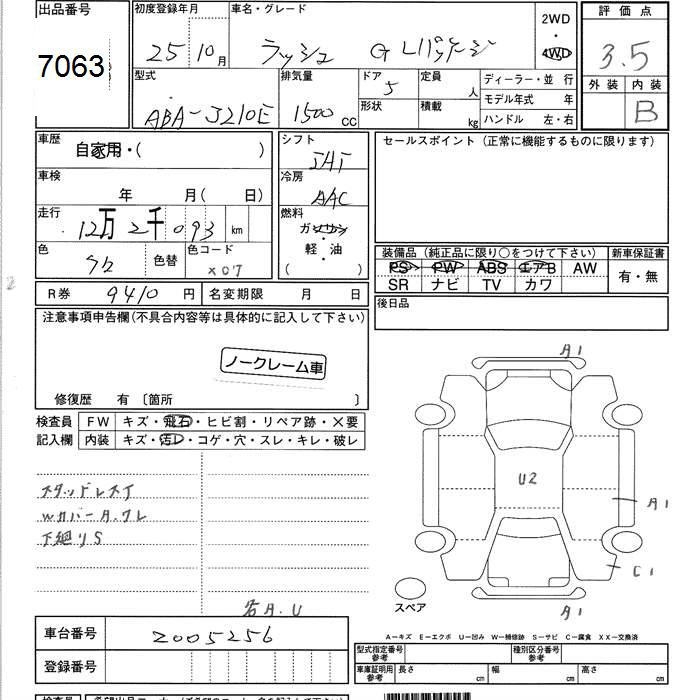 出品番号 初度登録年月 車名・グレード 2WD 評価点
7063 25 10月 ラッシュ G Lパッケージ ・ 4WD 3.5
型式 排気量 ドア 定員 ディーラー・並 行 外装 内装
ABA-J210E 1500cc 5 人 モデル年式 年 B
形状 積載 kg ハンドル 左・右
車歴 シフト セールスポイント (正常に機能するものに限ります)
自家用・( ) IAT
車検 冷房
年 月( 日) AAC
走行 燃料
12万2千093km ガソリン
・
軽・油
( )
色 色替 色コード
X07
装備品 (純正品に限り○をつけて下さい) 新車保証書
PS PW ABS エアB AW 有・無
SR ナビ TV カワ
R券 9410円 名変期限 月 日 後日品
注意事項申告欄(不具合内容等は具体的に記入して下さい)
ノークレーム車
修復歴 有 〔箇所 〕
検査員 FW キズ・飛石・ヒビ割・リペア跡・X要
記入欄 内装 キズ・汚レ・コゲ・穴・スレ・キレ・破レ
スタッドレスT
WカバーA.ワレ
下廻りS
各A.U
A1
U2
A1
C1
A1
スペア
車台番号 2005256
登録番号
A-キズ E-エクボ U-凹み W-補修跡 S-サビ C-腐食 XX-交換済
型式指定番号 参考 種別区分番号 参考
車庫証明用 参考 長さ cm 幅 cm 高さ cm